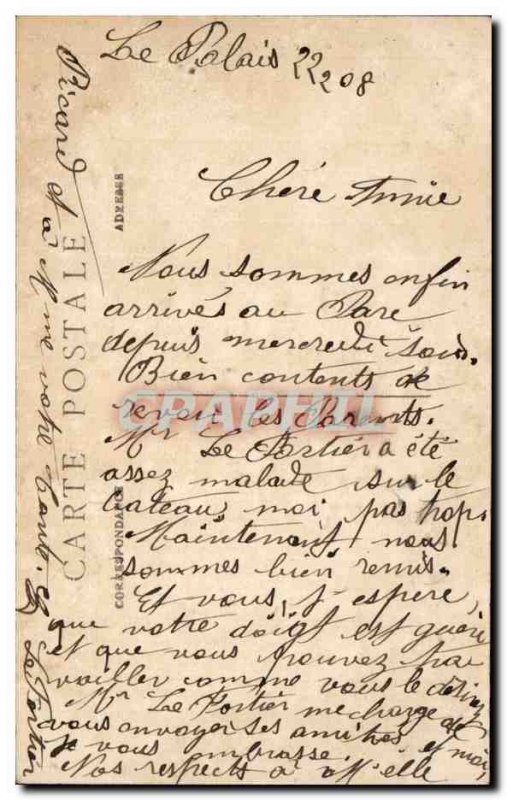 Le Palais 22 2 08
Chére Amie
Nous sommes enfin
arrivés au Pare
depuis mercredi soir.
Bien contents de
revoir les Parents.
Mr Le Portier a été
assez malade sur le
bateau, moi pas trop.
Maintenant nous
sommes bien remis.
Et vous, j'espère,
que votre doigt est guéri
et que vous pouvez tra
vailler comme vous le désirez
Mr Le Portier me charge de
vous envoyer ses amitiés et moi,
je vous embrasse.
Nos respects à M'elle
Picard et à Mme votre tante.
Le Portier
CARTE POSTALE
CORRESPONDANCE
ADRESSE
CPAPHIL